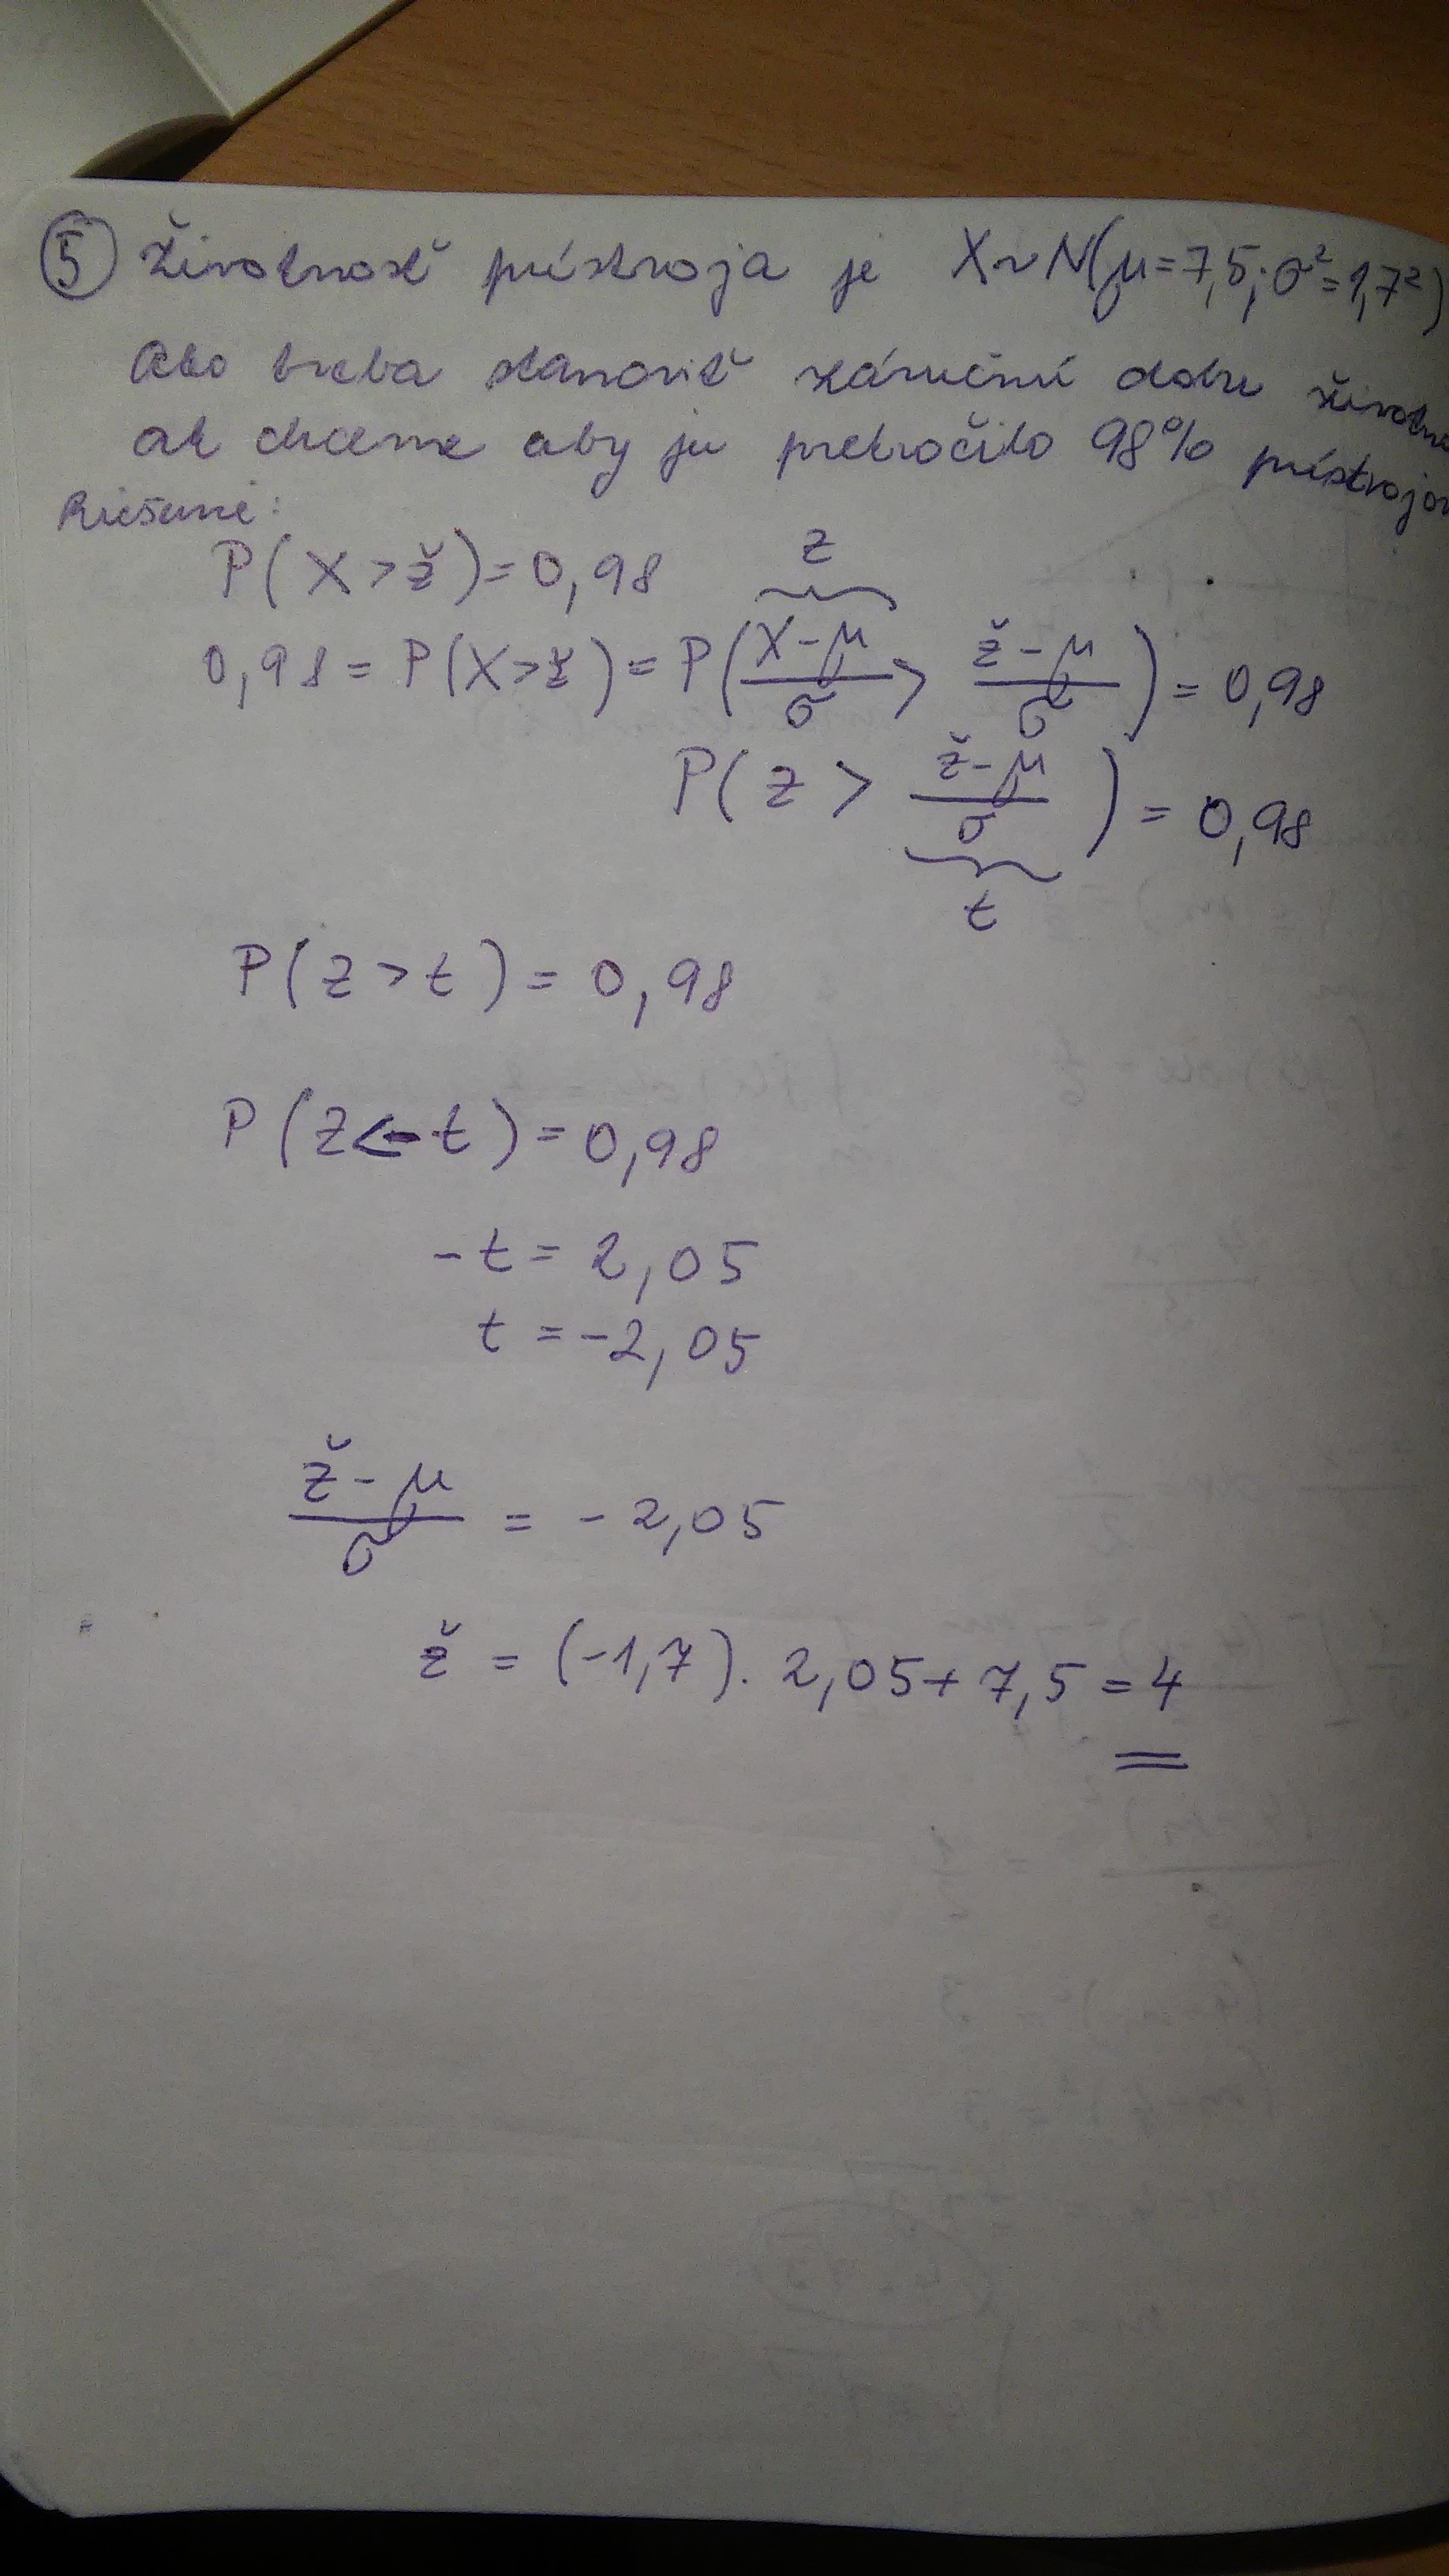 5 Životnosť prístroja je X~N(μ=7,5; σ²=1,7²)
Ako treba stanoviť záručnú dobu
ak chceme aby ju prekročilo 98%
Riešenie:
P(X>ž)=0,98 z
0,98 = P(X>ž) = P((X-μ)/σ > (ž-μ)/σ) = 0,98
P(z > (ž-μ)/σ) = 0,98
t
P(z>t) = 0,98
P(z<-t) = 0,98
-t = 2,05
t = -2,05
(ž-μ)/σ = -2,05
ž = (-1,7). 2,05+7,5=4